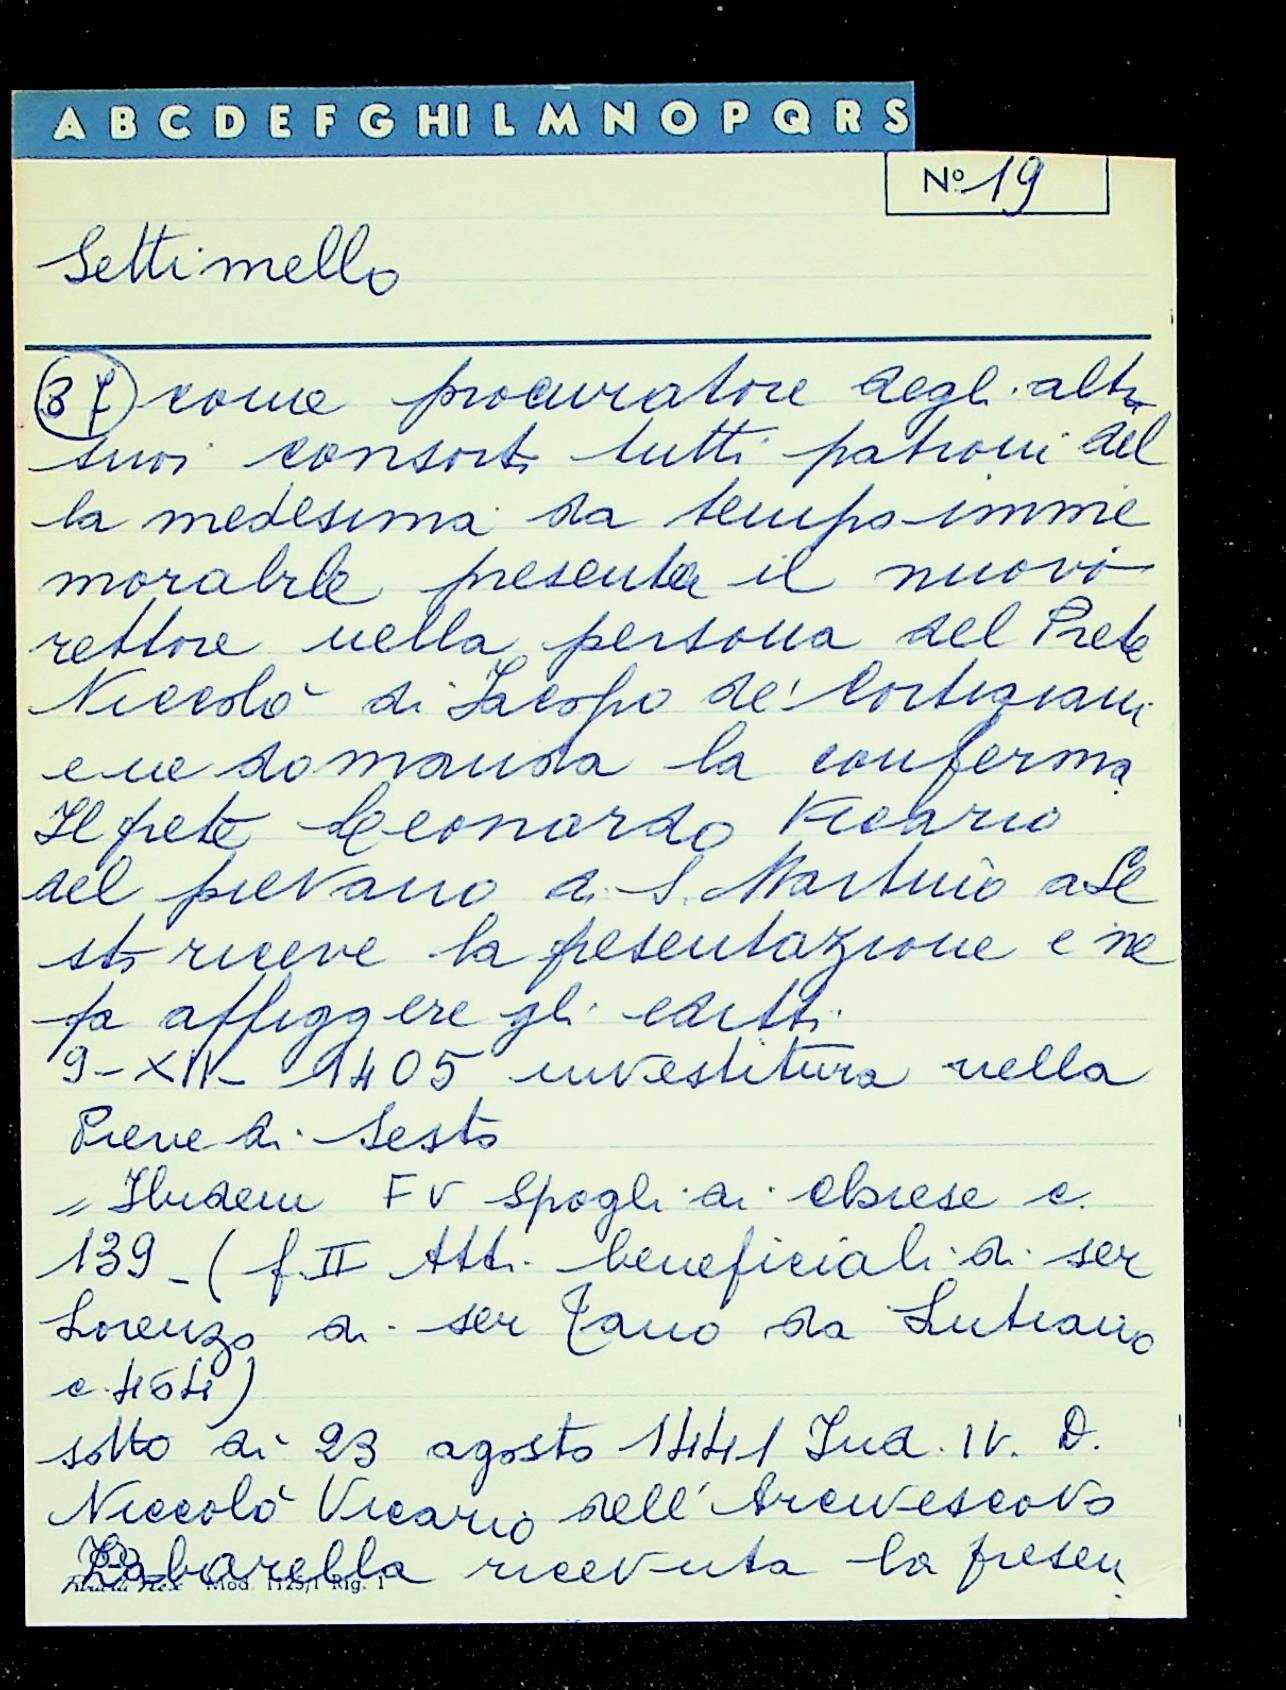 A B C D E F G H I L M N O P Q R S
Nº 19
Settimello
37 come procuratore degli altri
suoi consorti tutti patroni del
la medesima da tempo imme
morabile presenta il nuovo
rettore nella persona del Prete
Niccolò di Jacopo de' Cortigiani
e ne domanda la conferma
Il prete Leonardo Vicario
del pievano di S. Martino a Se
sto riceve la presentazione e ne
fa affiggere gli editti.
9-XII- 1405 investitura nella
Pieve di Sesto
" Ibidem F V Spogli di c.
139 - ( f. II Atti beneficiali di ser
Lorenzo di ser Tano da Lutiano
c. 464)
sotto dì 23 agosto 1441 Ind. IV. D.
Niccolò Vicario dell'Arcivescovo
Zabarella ricevuta la presen
Mod. 1125/1 Rig. 1